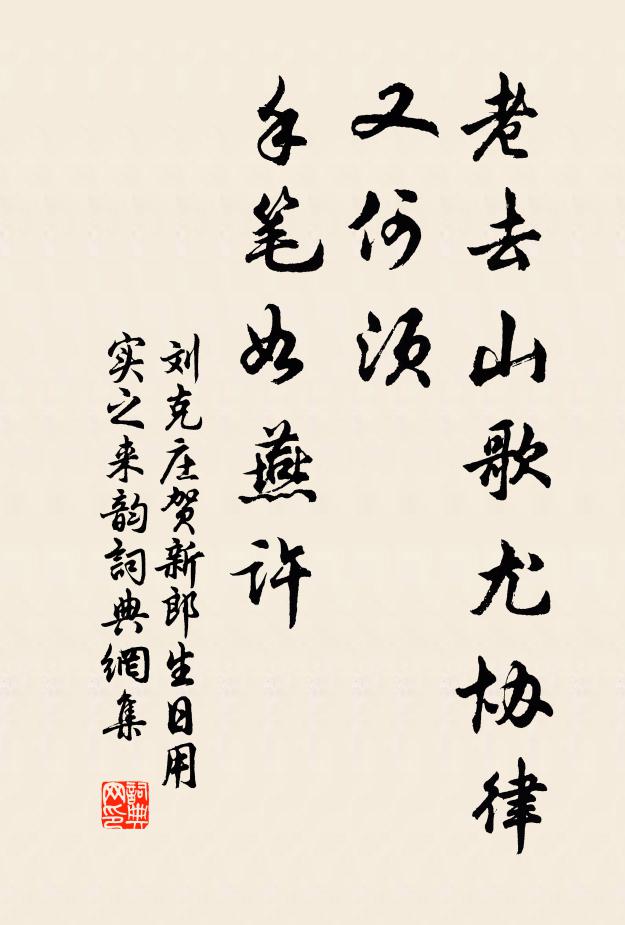 老去山歌尤协律
又何须
手笔如燕许
刘克庄贺新郎生日用
实之来韵词典網集
詞典网印